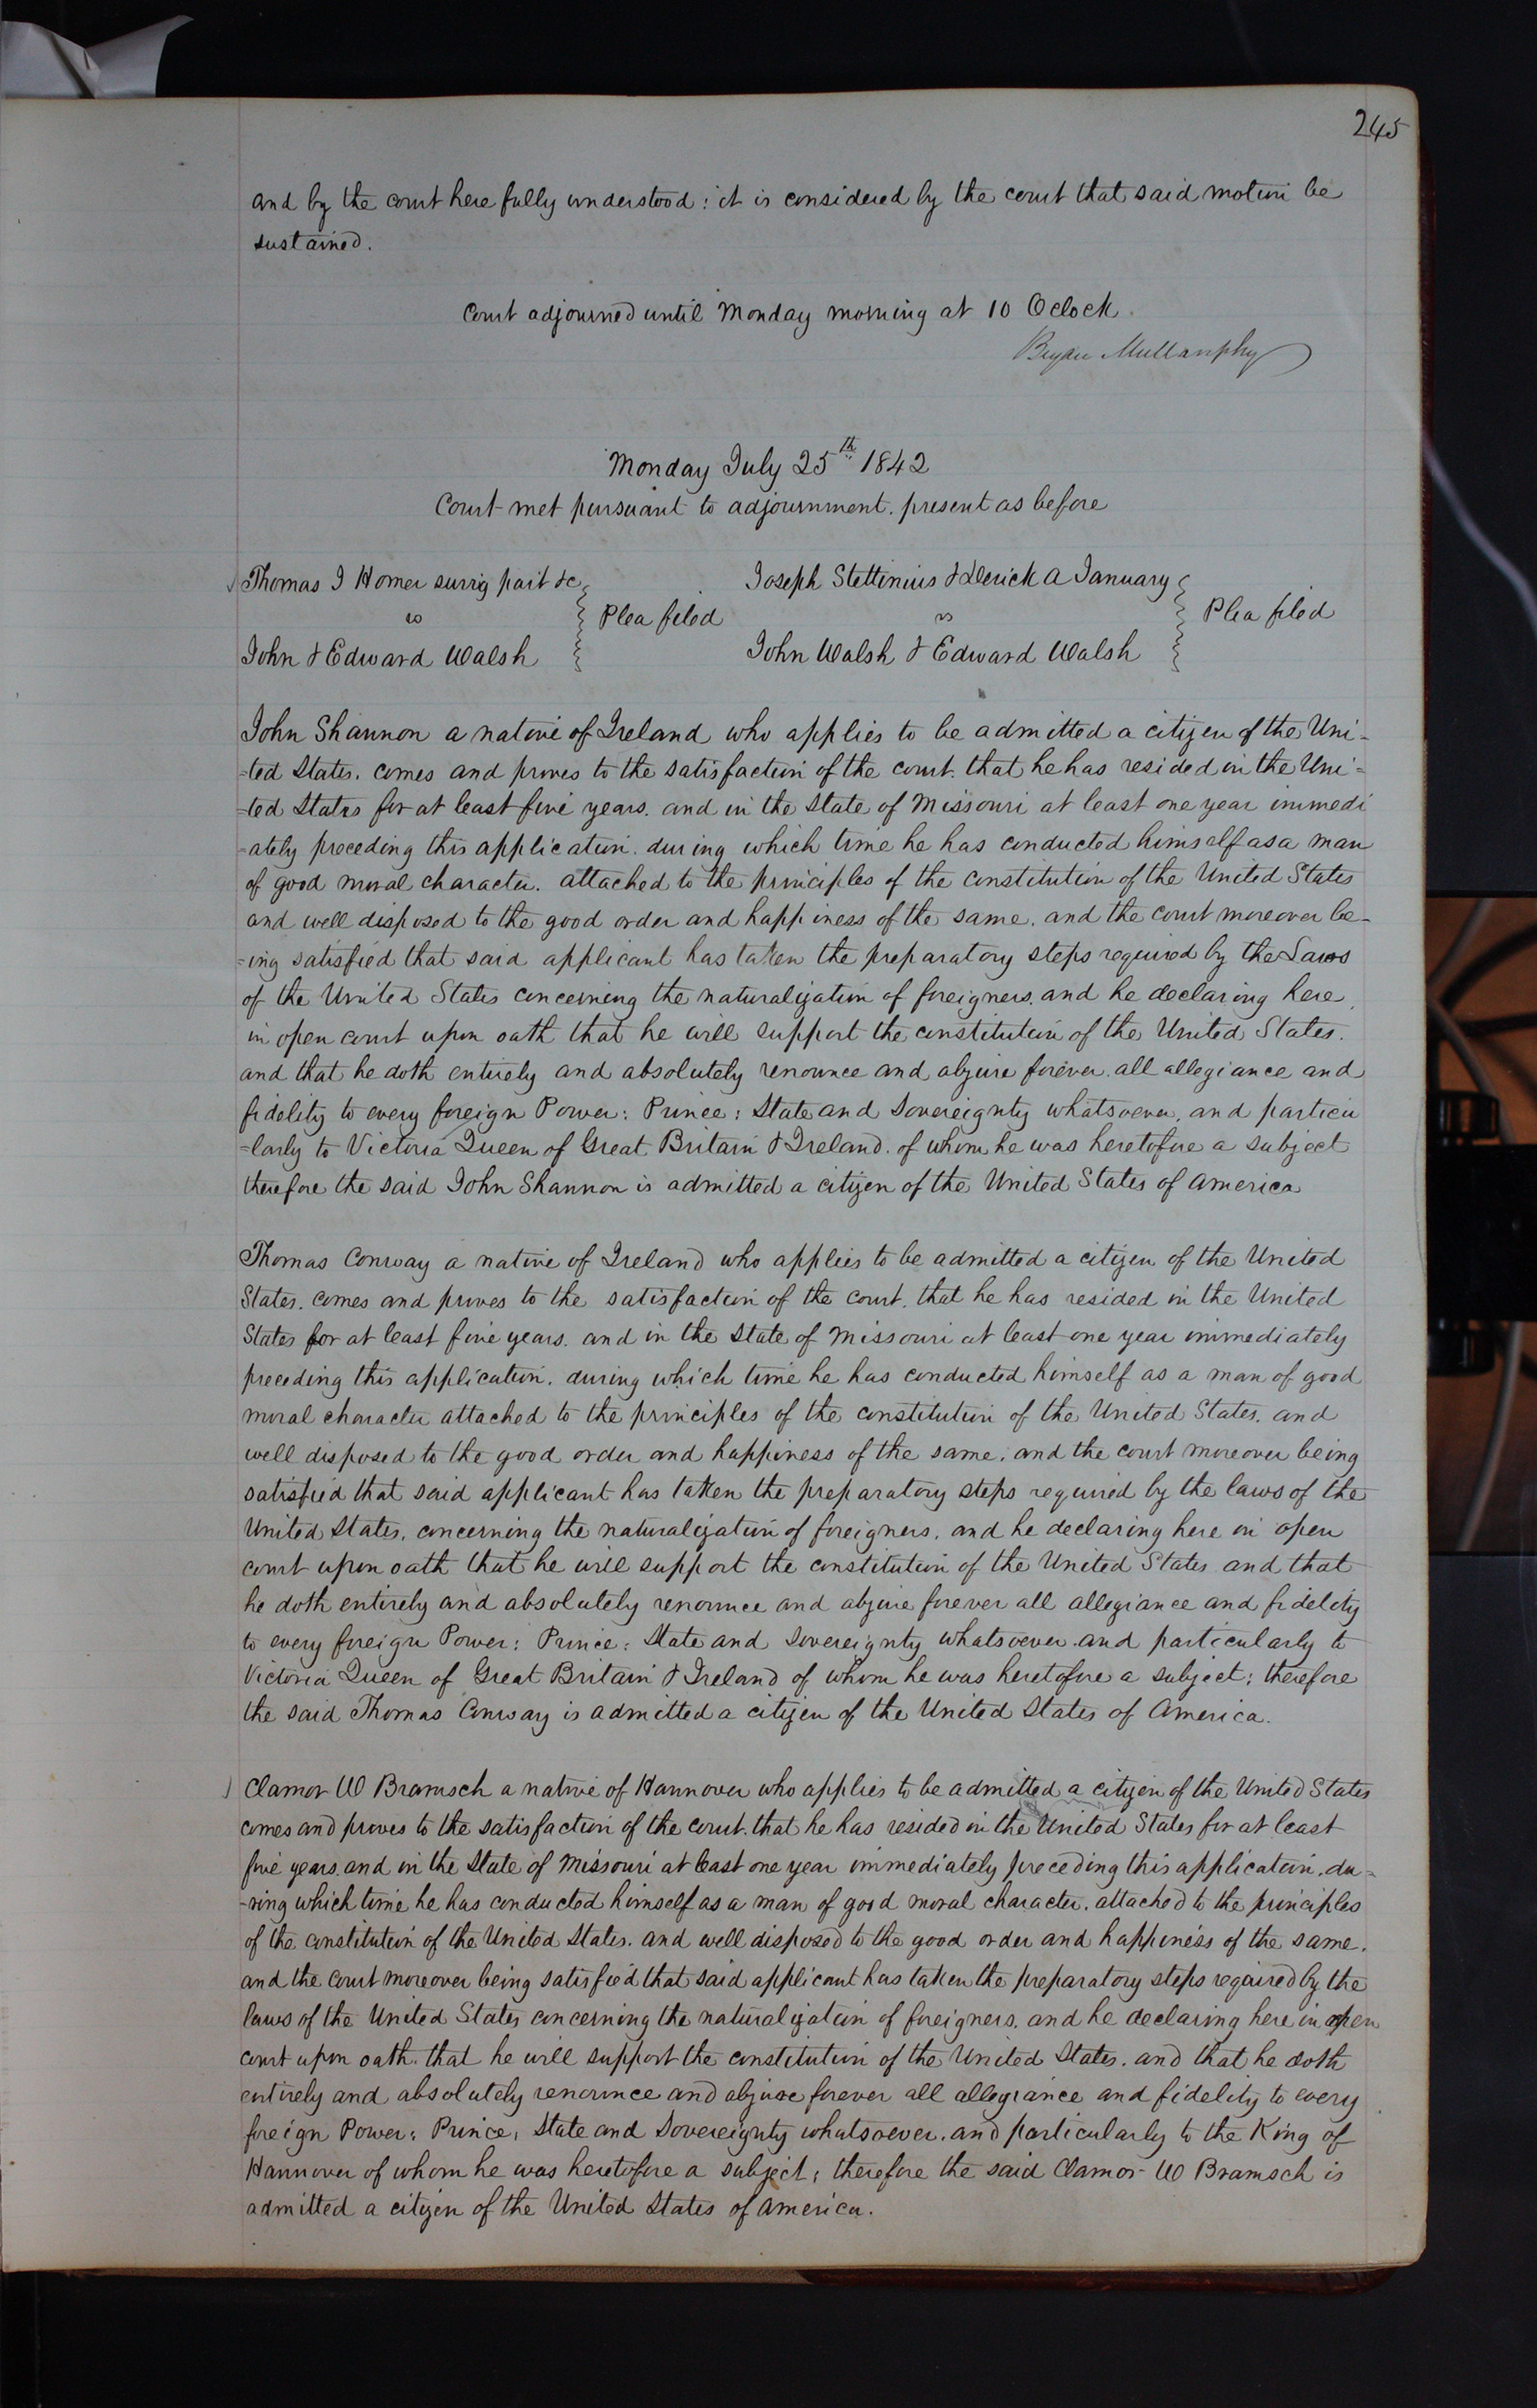 245
and by the court here fully understood: it is considered by the court that said motion be
sustained.
Court adjourned until Monday morning at 10 Oclock.
Bryan Mullanphy
Monday July 25th 1842
Court met pursuant to adjournment. present as before
Thomas J Homer survig part &c
vs
John & Edward Walsh
Plea filed
Joseph Stettinius & Derick A January
vs
John Walsh & Edward Walsh
Plea filed
John Shannon a native of Ireland who applies to be admitted a citizen of the Uni-
-ted States. comes and proves to the satisfaction of the court. that he has resided in the Uni=
=ted States for at least five years. and in the State of Missouri at least one year immedi
-ately preceding this application. during which time he has conducted himself as a man
of good moral character. attached to the principles of the constitution of the United States
and well disposed to the good order and happiness of the same. and the court moreover be-
=ing satisfied that said applicant has taken the preparatory steps required by the Laws
of the United States concerning the naturalization of foreigners. and he declaring here
in open court upon oath that he will support the constitution of the United States.
and that he doth entirely and absolutely renounce and abjure forever. all allegiance and
fidelity to every foreign Power: Prince: State and Sovereignty whatsoever. and particu
=larly to Victoria Queen of Great Britain & Ireland. of whom he was heretofore a subject
therefore the said John Shannon is admitted a citizen of the United States of America
Thomas Conway a native of Ireland who applies to be admitted a citizen of the United
States. comes and proves to the satisfaction of the court. that he has resided in the United
States for at least five years. and in the State of Missouri at least one year immediately
preceding this application. during which time he has conducted himself as a man of good
moral character attached to the principles of the constitution of the United States. and
well disposed to the good order and happiness of the same. and the court moreover being
satisfied that said applicant has taken the preparatory steps required by the laws of the
United States. concerning the naturalization of foreigners. and he declaring here in open
court upon oath that he will support the constitution of the United States and that
he doth entirely and absolutely renounce and abjure forever all allegiance and fidelity
to every foreign Power: Prince: State and Sovereignty whatsoever. and particularly to
Victoria Queen of Great Britain & Ireland of whom he was heretofore a subject: therefore
the said Thomas Conway is admitted a citizen of the United States of America.
Clamor W Bramsch a native of Hannover who applies to be admitted a citizen of the United States
comes and proves to the satisfaction of the court. that he has resided in the United States for at least
five years. and in the State of Missouri at least one year immediately preceding this application. du=
-ring which time he has conducted himself as a man of good moral character. attached to the principles
of the constitution of the United States. and well disposed to the good order and happiness of the same.
and the court moreover being satisfied that said applicant has taken the preparatory steps required by the
laws of the United States concerning the naturalization of foreigners. and he declaring here in open
court upon oath. that he will support the constitution of the United States. and that he doth
entirely and absolutely renounce and abjure forever all allegiance and fidelity to every
foreign Power: Prince: State and Sovereignty whatsoever. and particularly to the King of
Hannover of whom he was heretofore a subject: therefore the said Clamor W Bramsch is
admitted a citizen of the United States of America.